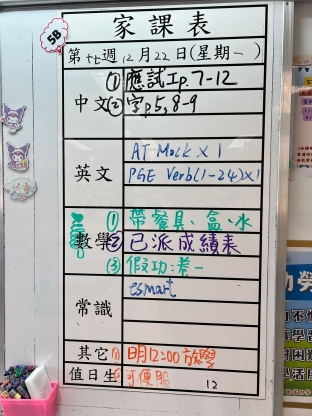 5B
家課表
第十七週 12月22日(星期一)
中文
① 應試工p.7-12
② 字p.5,8-9
英文
AT Mock x 1
PGE Verb(1-24)x1
數學
① 帶餐具、盒、水
② 已派成績表
③ 假功:卷一
常識
esmart
其它
① 明12:00放學
值日生
② 可便服
12